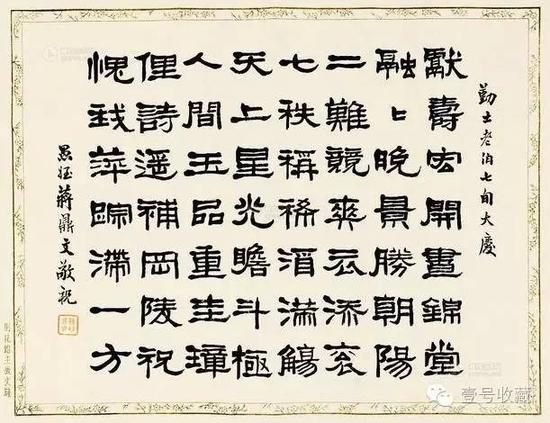 勤士老伯七旬大慶
獻壽宏開晝錦堂
融〻晚景勝朝陽
二難競爽云添衮
七秩稱稀酒滿觴
天上星光瞻斗極
人間玉品重圭璋
俚詩遥補岡陵祝
愧我萍踪滯一方
愚姪蔣鼎文敬祝
壹号收藏